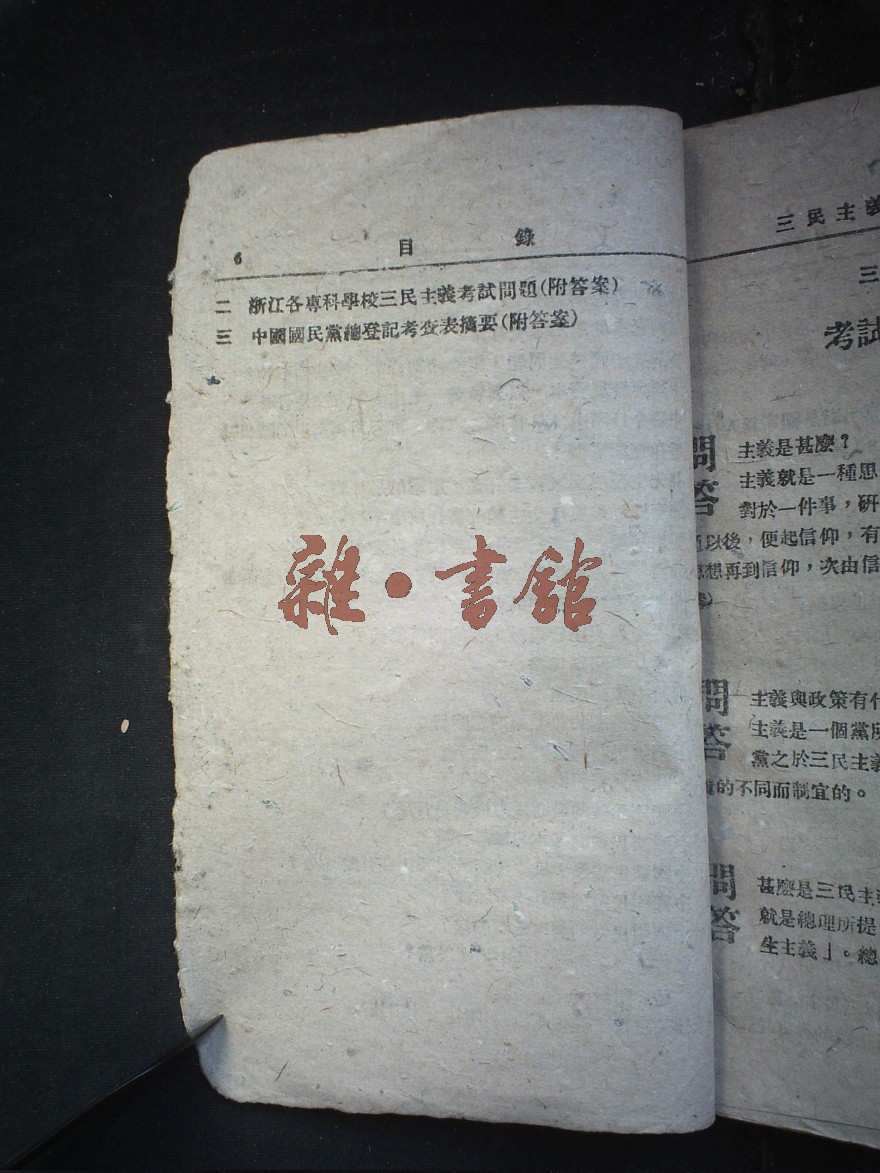 6 目 錄
二 浙江各專科學校三民主義考試問題(附答案)
三 中國國民黨總登記考查表摘要(附答案)
雜·書館
三民主義
三
考試
問 主義是甚麼？
答 主義就是一種思
對於一件事，研
以後，便起信仰，有
想再到信仰，次由信
問 主義與政策有什
答 主義是一個黨所
黨之於三民主義
的不同而制宜的。
問 甚麼是三民主義
答 就是總理所提
生主義」。總